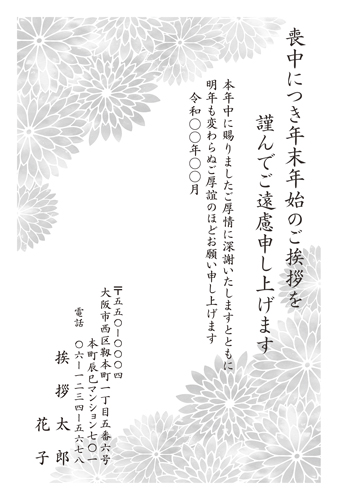 喪中につき年末年始のご挨拶を
謹んでご遠慮申し上げます
本年中に賜りましたご厚情に深謝いたしますとともに
明年も変わらぬご厚誼のほどお願い申し上げます
令和〇〇年〇〇月
〒五五〇-〇〇〇四
大阪市西区靱本町一丁目五番六号
本町辰巳マンション七〇一
電話 〇六-一二三四-五六七八
挨拶 太郎
花子